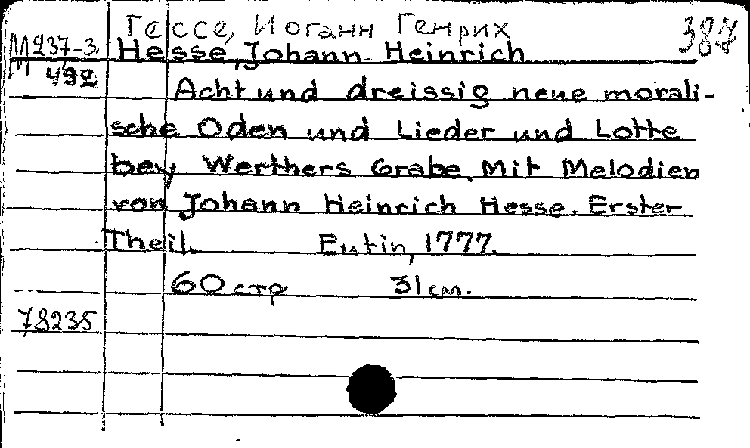 Гессе, Иоганн Генрих 387
М 237-3 Hesse, Johann Heinrich
492 Acht und dreissig neue morali-
sche Oden und Lieder und Lotte
bey Werthers Grabe. Mit Melodien
von Johann Heinrich Hesse. Erster
Theil. Eutin, 1777.
60 стр 31 см.
78235